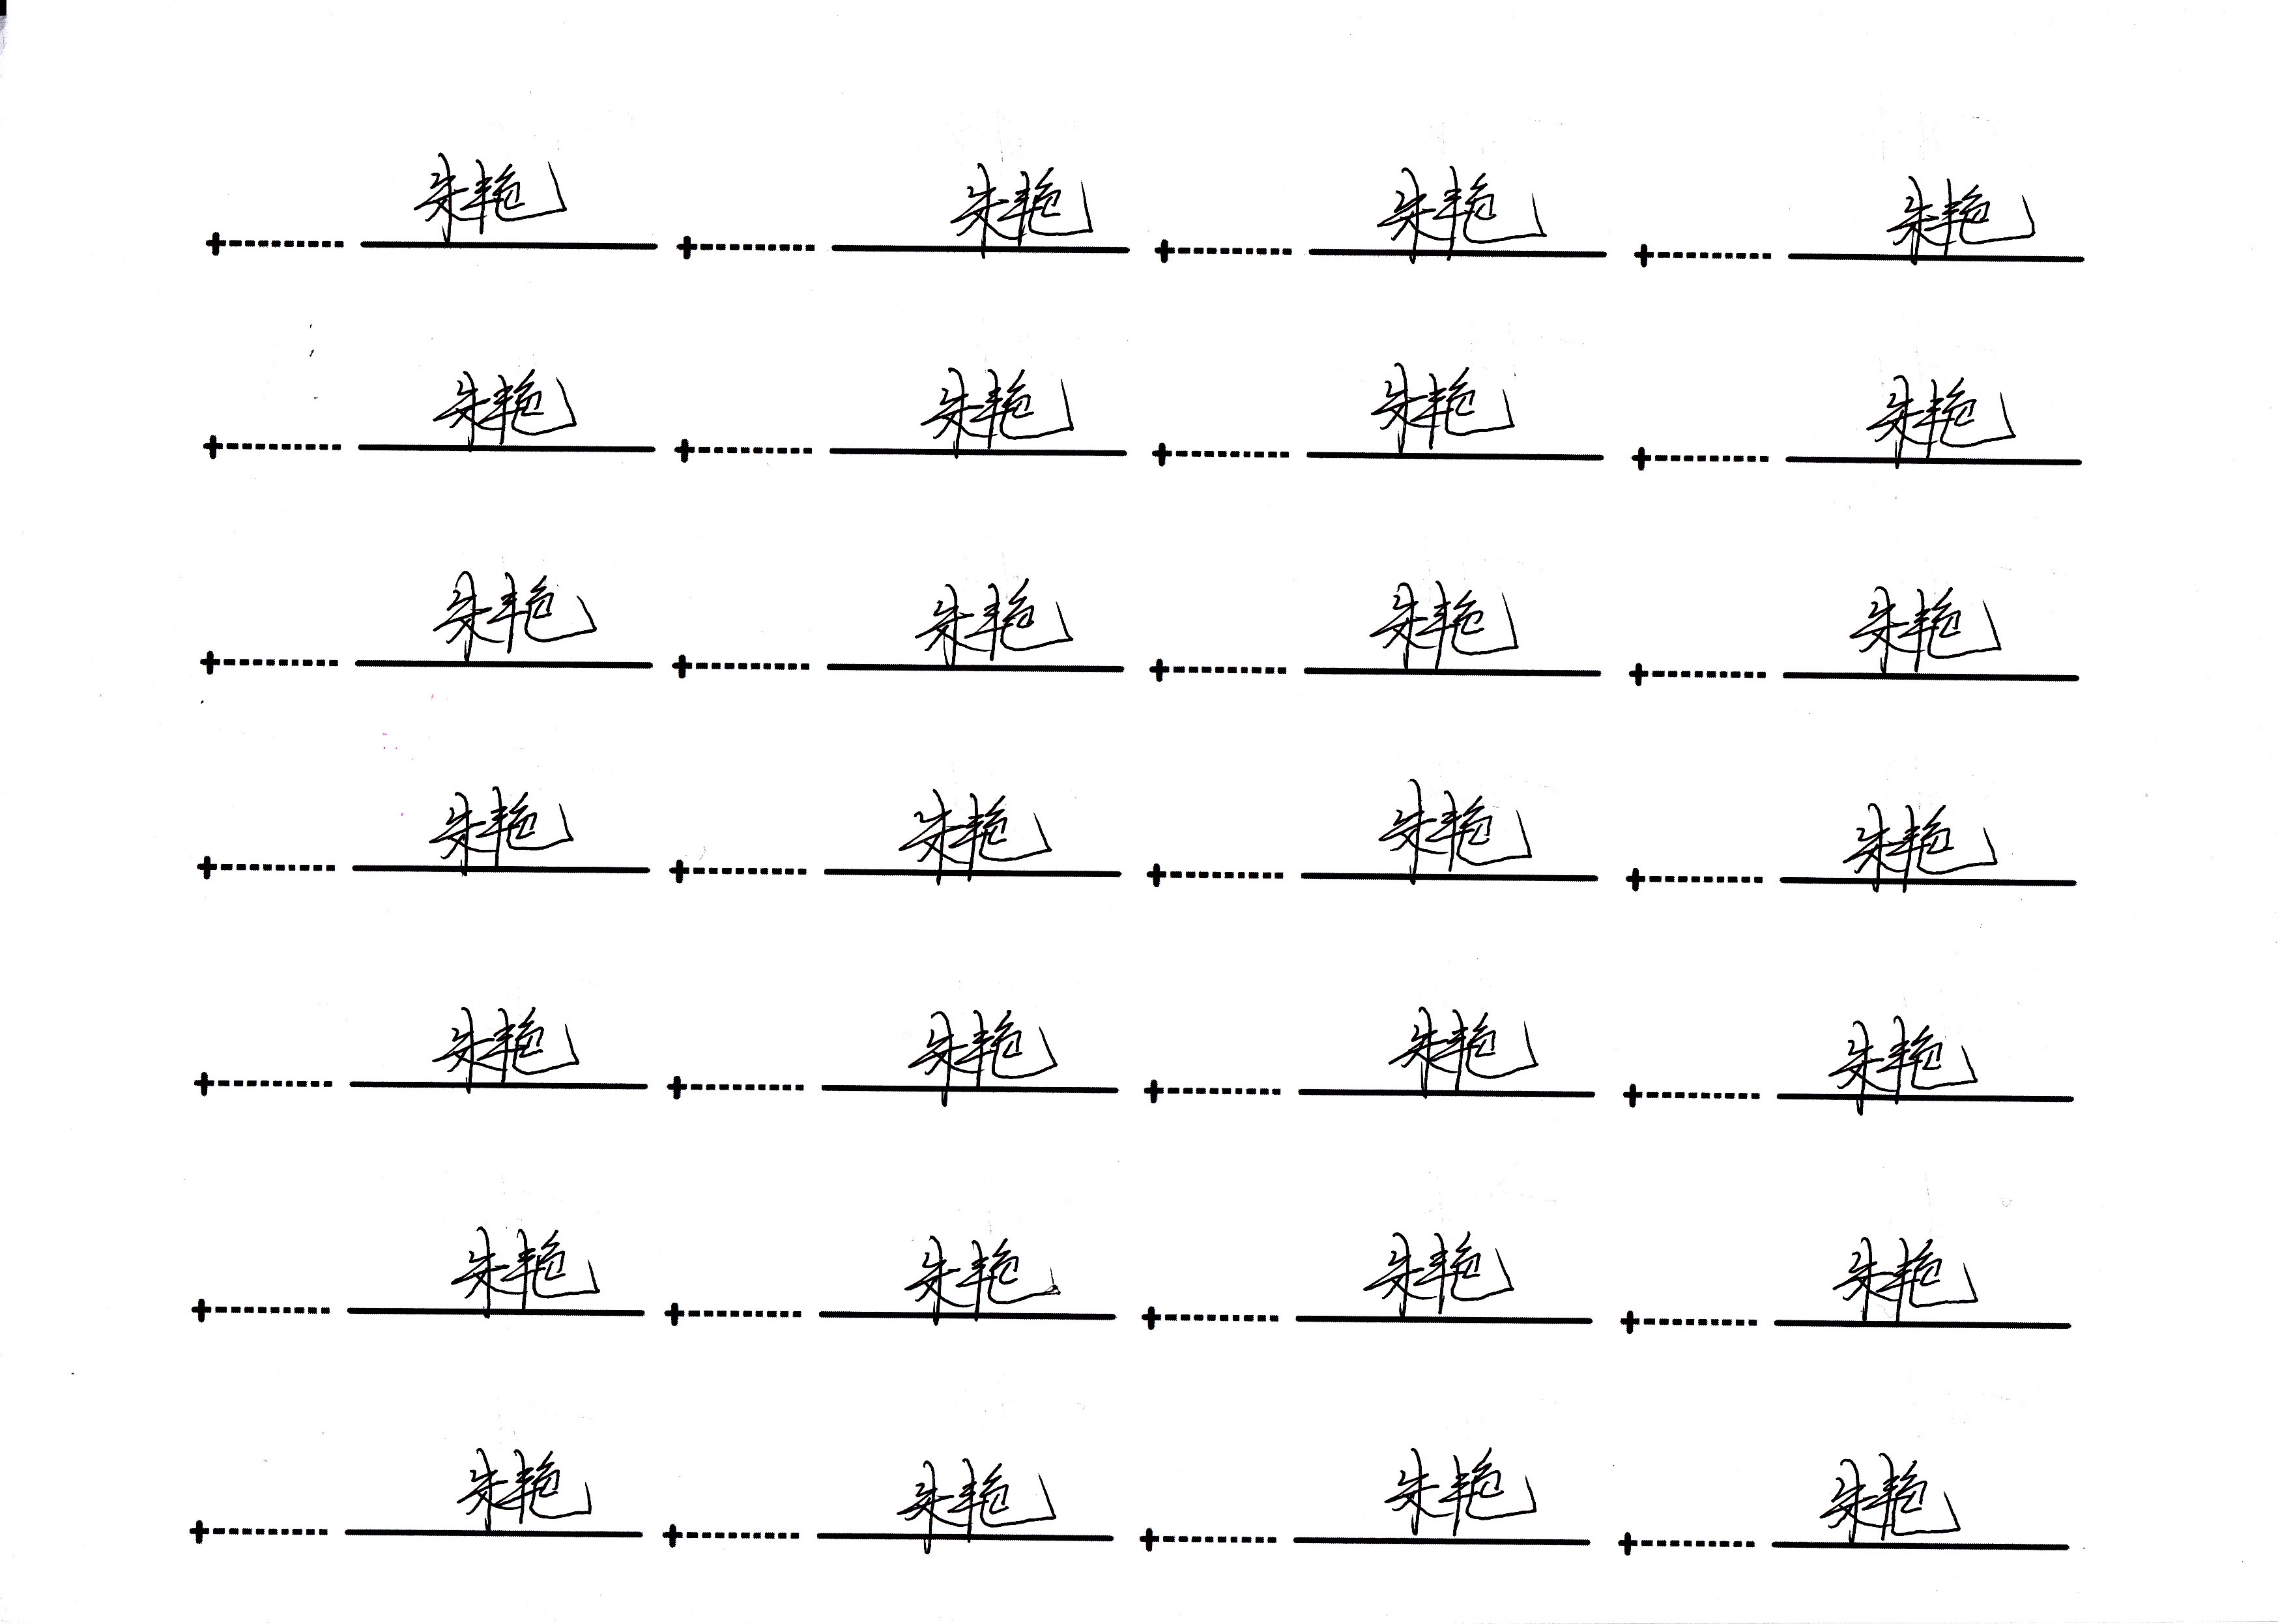 朱艳 朱艳 朱艳 朱艳
朱艳 朱艳 朱艳 朱艳
朱艳 朱艳 朱艳 朱艳
朱艳 朱艳 朱艳 朱艳
朱艳 朱艳 朱艳 朱艳
朱艳 朱艳 朱艳 朱艳
朱艳 朱艳 朱艳 朱艳